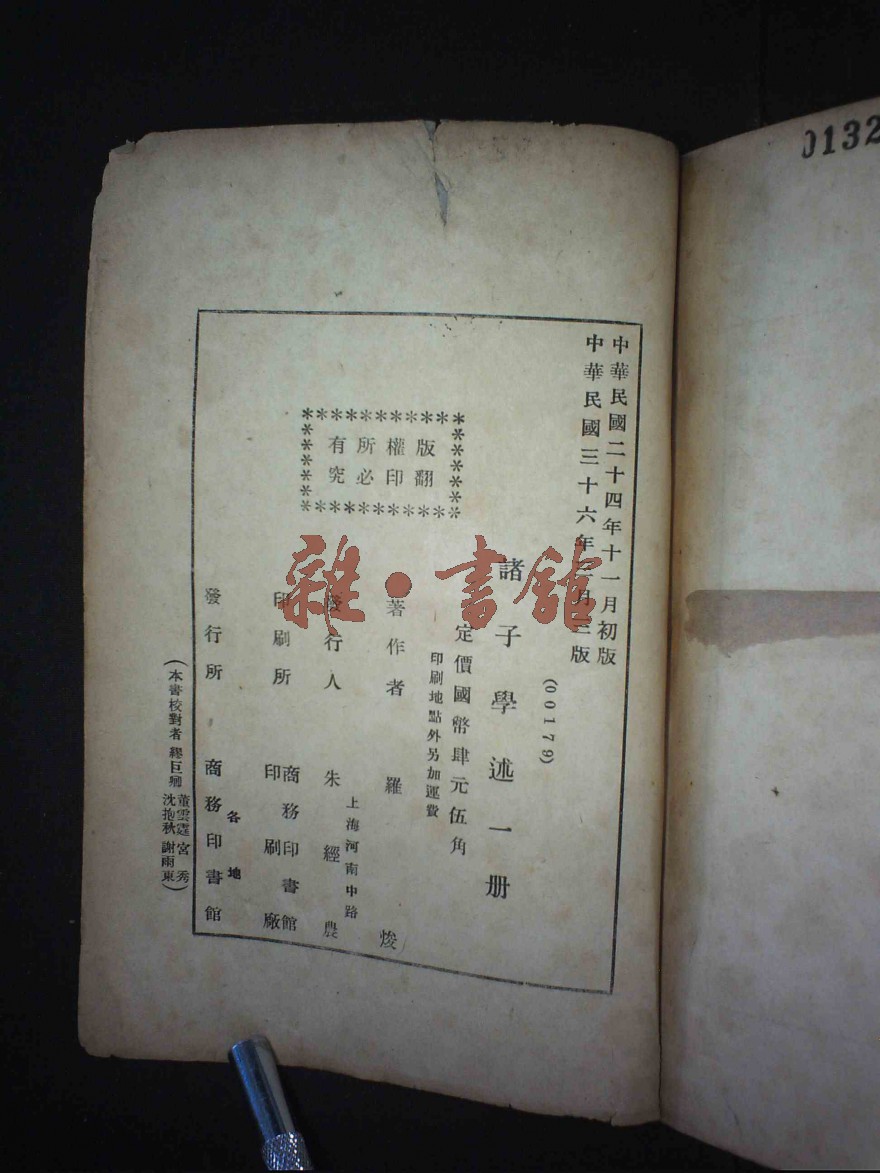 中華民國二十四年十一月初版
中華民國三十六年三月三版
(00179)
諸子學述一册
定價國幣肆元伍角
印刷地點外另加運費
版權所有
翻印必究
著作者 羅焌
上海河南中路
發行人 朱經農
印刷所 商務印書館印刷廠
各地
發行所 商務印書館
(本書校對者 繆巨卿 董雲霆 宮秀 沈抱秋 謝雨東)
雜·書館
0132